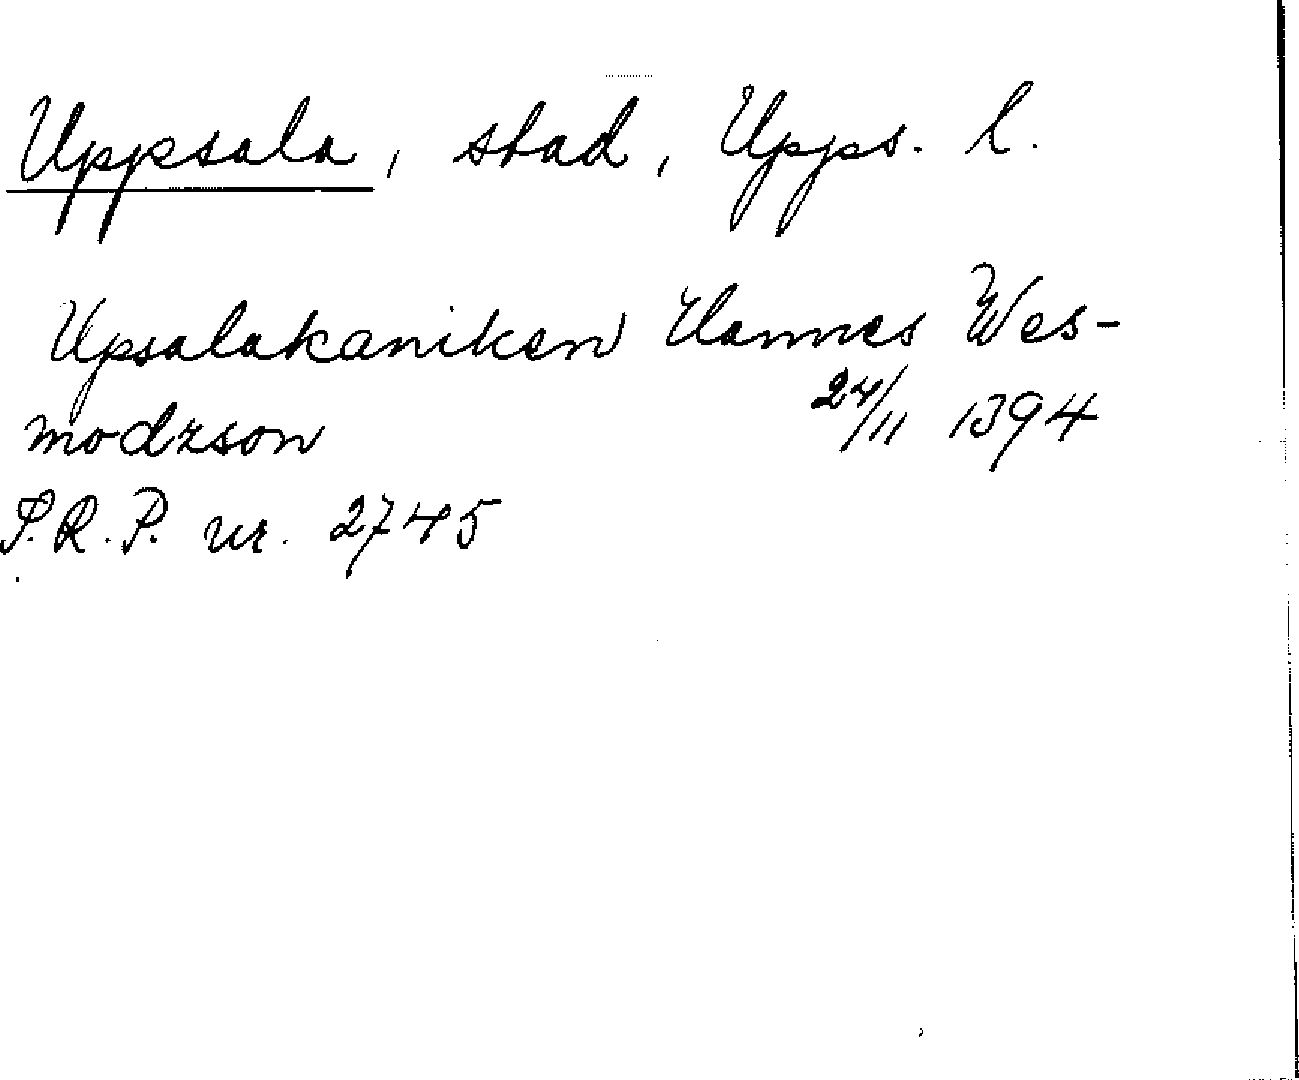 Uppsala, stad, Upps. l.
Upsalakaniken Hannes Wes-
modzson 24/11 1394
S.R.P. nr. 2745